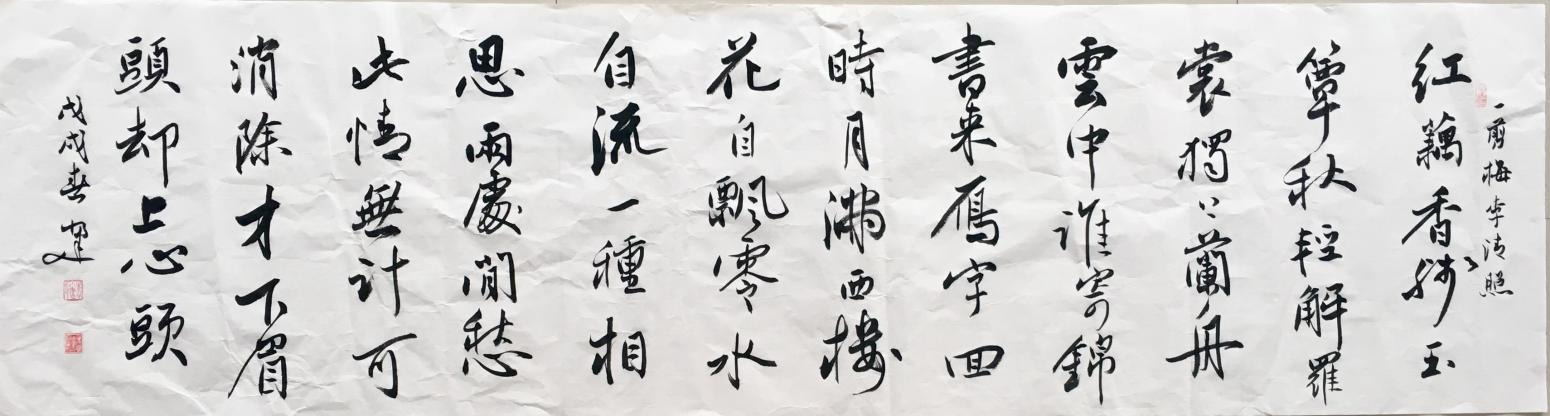 一剪梅 李清照
红藕香残玉
簟秋輕解羅
裳獨上蘭舟
雲中誰寄錦
書来雁字回
時月滿西樓
花自飄零水
自流一種相
思兩處閒愁
此情無計可
消除才下眉
頭却上心頭
戊戌春